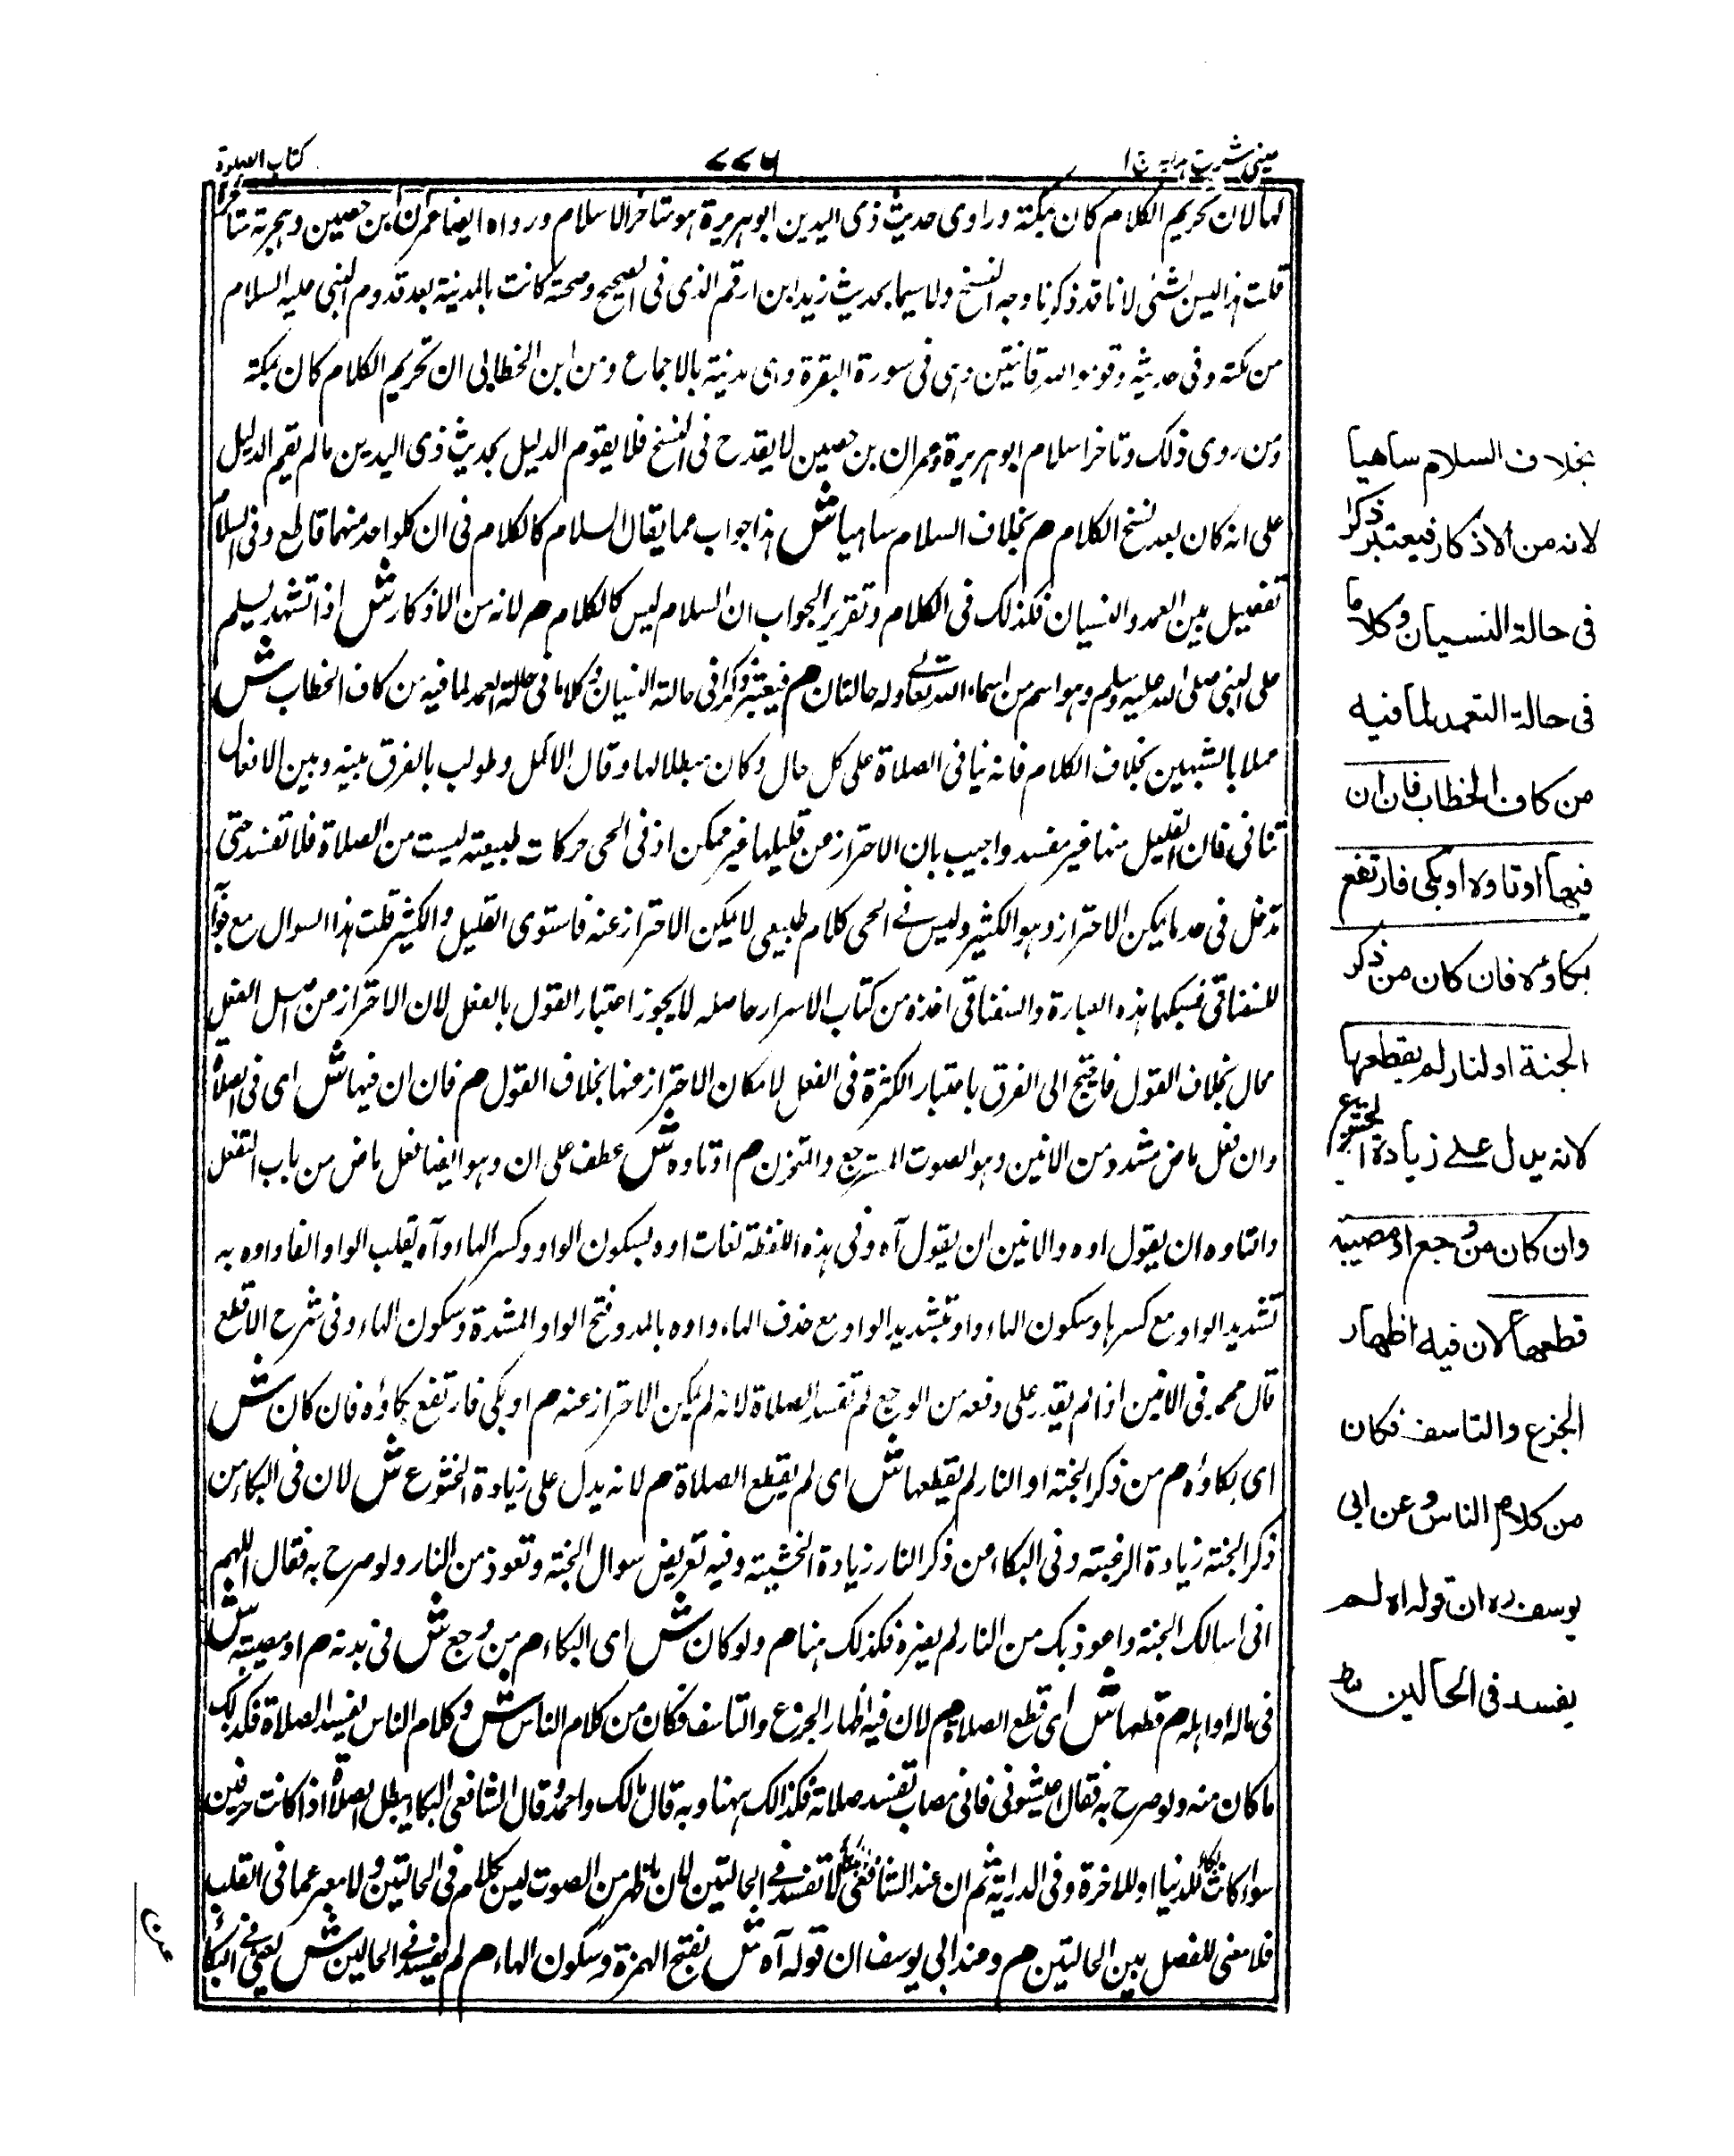 عینی شرح ہدایہ ج ۱
۷۷۶
کتاب الصلوۃ
لها لان تحريم الكلام كان بمكة وراوى حديث ذى اليدين ابو هريرة هو متاخر الاسلام ورواه ايضا عمران ابن حصين وهجرته متاخرة
قلت هذا ليس بشئ لانا قد ذكرنا وجه النسخ ولا سيما بحديث زيد ابن ارقم الذى فى الصحيح وصحته كانت بالمدينة بعد قدوم النبى عليه السلام
من مكة وفى حديثه وقوموا لله قانتين وهى فى سورة البقرة وهى مدنية بالاجماع ومن ابن الخطابى ان تحريم الكلام كان بمكة
ومن روى ذلك وتاخر اسلام ابو هريرة وعمران بن حصين لا يقدح فى النسخ فلا يقوم الدليل بحديث ذى اليدين ما لم يقم الدليل
على انه كان بعد نسخ الكلام م بخلاف السلام ساهيا ش هذا جواب عما يقال السلام كالكلام فى ان كلو احد منهما قاطع وفى السلام
تفصيل بين العمد والنسيان فكذلك فى الكلام وتقرير الجواب ان السلام ليس كالكلام م لانه من الاذكار ش اذا تشهد يسلم
على النبى صلى الله عليه وسلم وهو اسم من اسماء الله تعالى وله حالتان م فيعتبر ذكرا فى حالة النسيان وكلاما فى حالة العمد لما فيه من كاف الخطاب ش
عملا بالشبهين بخلاف الكلام فانه ينافى الصلاة على كل حال وكان مبطلا لها وقال الاكمل وطولب بالفرق بينه وبين الافعال
تنافى فان القليل منها غير مفسد واجيب بان الاحتراز من قليلها غير ممكن اذ فى الحى حركات طبيعية ليست من الصلاة فلا تفسد حتى
تدخل فى حد ما يمكن الاحتراز وهو الكثير وليس فى الحى كلام طبيعى لا يمكن الاحتراز عنه فاستوى القليل والكثير قلت هذا السوال مع جوابه
للسغناقى فسبكها بهذه العبارة والسغناقى اخذه من كتاب الاسرار حاصله لا يجوز اعتبار القول بالفعل لان الاحتراز من اصل الفعل
محال بخلاف القول فاحتيج الى الفرق باعتبار الكثرة فى الفعل لامكان الاحتراز عنها بخلاف القول م فان ان فيها ش اى فى الصلاة
وان فعل ماض مشدد من الانين وهو الصوت المتوجع والتحزن م او تاوه ش عطف على ان وهو ايضا فعل ماض من باب التفعل
والتاوه ان يقول اوه والانين ان يقول آه وفى هذه اللفظة لغات اوه بسكون الواو وكسر الهاء وآه بقلب الواو الفا واوه به
تشديد الواو مع كسرها وسكون الهاء واو بتشديد الواو مع حذف الهاء واوه بالمد وفتح الواو المشددة وسكون الهاء وفى شرح الاقطع
قال محمد فى الانين اذا لم يقدر على دفعه من الوجع لم تفسد الصلاة لانه لم يمكن الاحتراز عنه م او بكى فارتفع بكاؤه فان كان ش
اى بكاؤه م من ذكر الجنة او النار لم يقطعها ش اى لم يقطع الصلاة م لانه يدل على زيادة الخشوع ش لان فى البكاء من
ذكر الجنة زيادة الرغبة وفى البكاء من ذكر النار زيادة الخشية وفيه تعريض سوال الجنة وتعوذ من النار ولو صرح به فقال اللهم
انى اسالك الجنة واعوذ بك من النار لم يضره فكذلك هنا م ولو كان ش اى البكاء م من وجع ش فى بدنه م او مصيبة ش
فى ماله او اهله م قطعها ش اى قطع الصلاة م لان فيه اظهار الجزع والتاسف فكان من كلام الناس ش وكلام الناس يفسد الصلاة فكذلك
ما كان منه ولو صرح به فقال اغيثونى فانى مصاب تفسد صلاته فكذالك ههنا وبه قال مالك واحمد وقال الشافعى البكاء يبطل الصلاة اذا كانت حرفين
سواء كانت للدنيا او للاخرة وفى الدراية ثم ان عند الشافعى لا تفسد فى الحالتين لان ما ظهر من الصوت ليس بكلام فى الحالتين ولا معبر عما فى القلب
فلا معنى للفصل بين الحالتين م وعند ابى يوسف ان قوله آه ش بفتح الهمزة وسكون الهاء م لم يفسد فى الحالين ش يعنى فى البكاء
بخلاف السلام ساهيا
لانه من الاذكار فيعتبر ذكرا
فى حالة النسيان وكلاما
فى حالة التعمد لما فيه
من كاف الخطاب فان ان
فيها او تاوه او بكى فارتفع
بكاؤه فان كان من ذكر
الجنة او لنار لم يقطعها
لانه يدل على زيادة الخشوع
وان كان من وجع او مصيبة
قطعها لان فيه اظهار
الجزع والتاسف فكان
من كلام الناس وعن ابى
يوسف ره ان قوله اه لم
يفسد فى الحالين